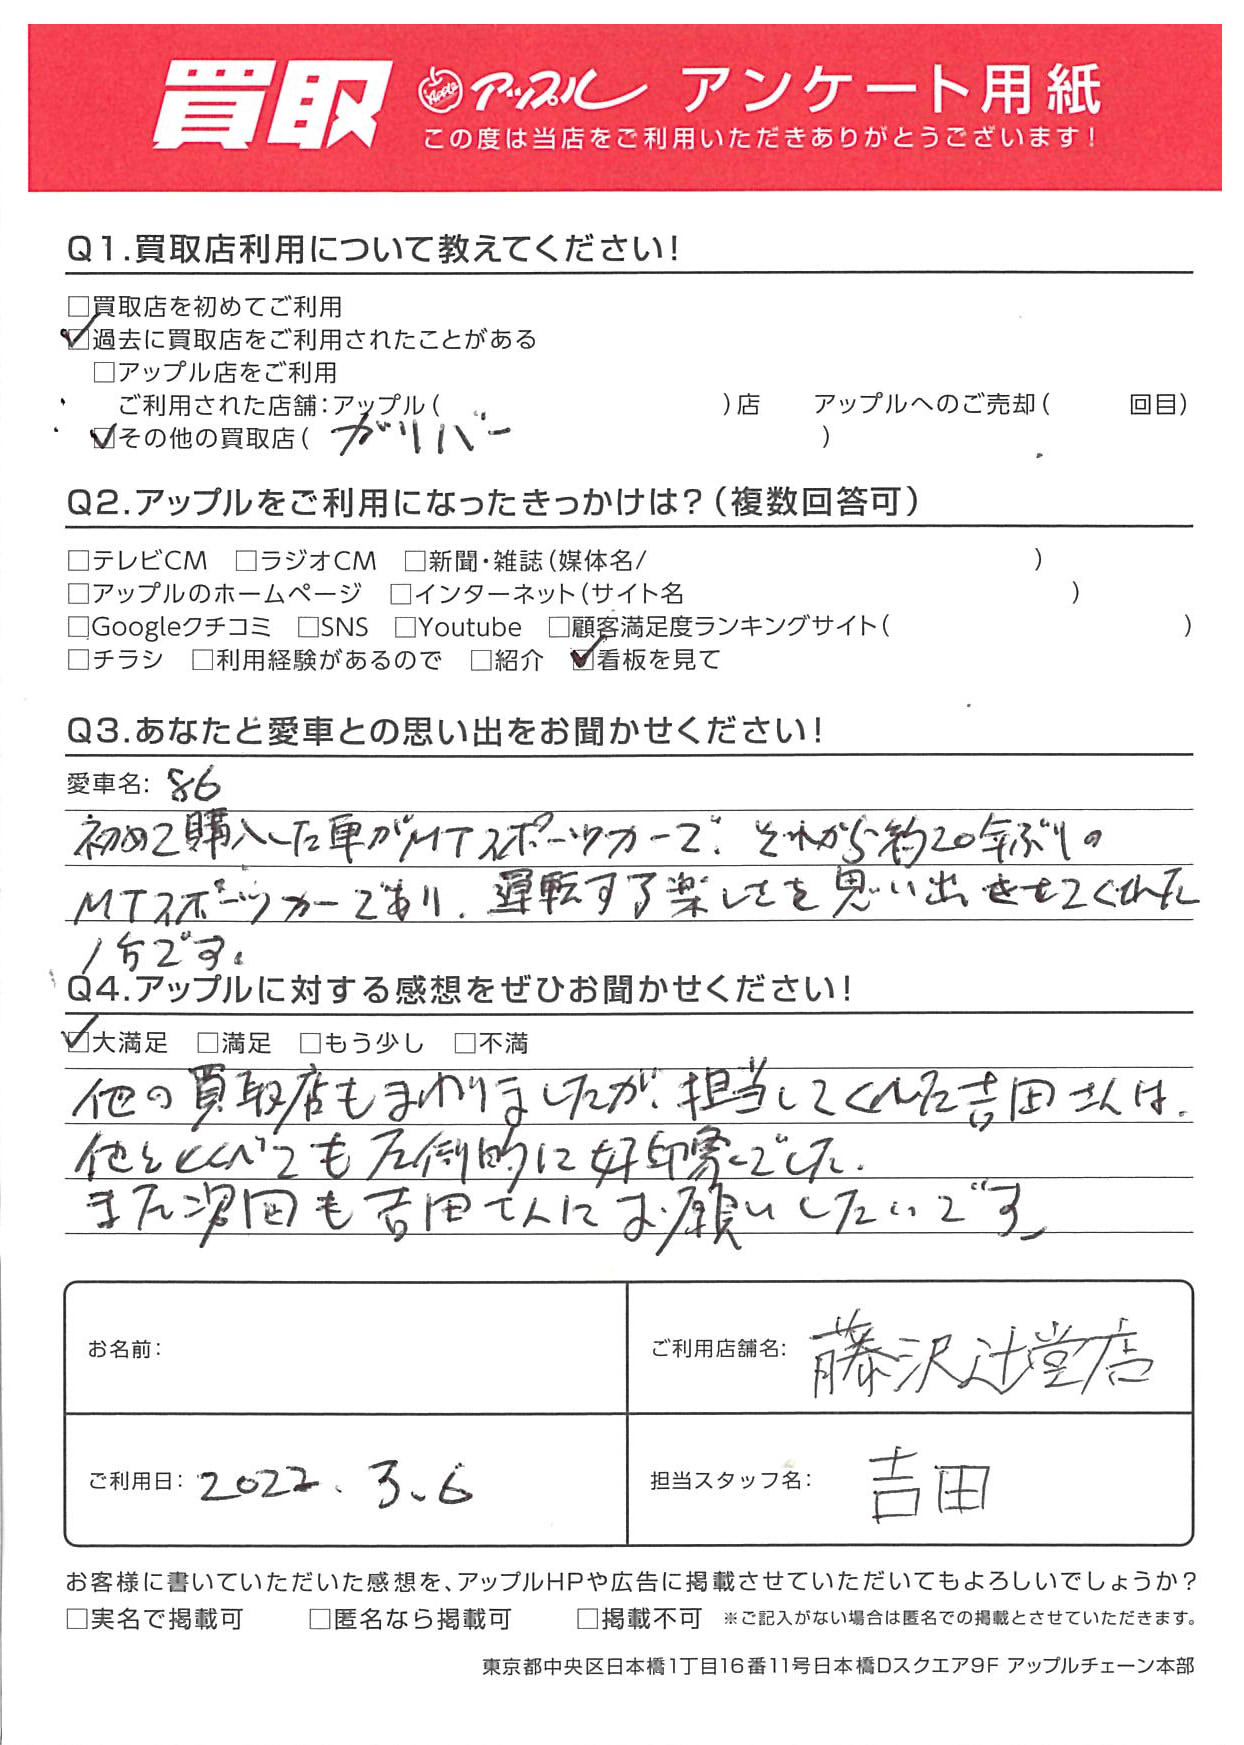 買取 Apple アップル アンケート用紙
この度は当店をご利用いただきありがとうございます!
Q1.買取店利用について教えてください!
□買取店を初めてご利用
☑過去に買取店をご利用されたことがある
□アップル店をご利用
ご利用された店舗:アップル( )店 アップルへのご売却( 回目)
☑その他の買取店( ガリバー )
Q2.アップルをご利用になったきっかけは?(複数回答可)
□テレビCM □ラジオCM □新聞・雑誌(媒体名/ )
□アップルのホームページ □インターネット(サイト名 )
□Googleクチコミ □SNS □Youtube □顧客満足度ランキングサイト( )
□チラシ □利用経験があるので □紹介 ☑看板を見て
Q3.あなたと愛車との思い出をお聞かせください!
愛車名: 86
初めて購入した車がMTスポーツカーで、それから約20年ぶりの
MTスポーツカーであり、運転する楽しさを思い出させてくれた
1台です。
Q4.アップルに対する感想をぜひお聞かせください!
☑大満足 □満足 □もう少し □不満
他の買取店もまわりましたが、担当してくれた吉田さんは、
他とくらべても圧倒的に好印象でした。
また次回も吉田さんにお願いしたいです。
お名前:
ご利用店舗名: 藤沢辻堂店
ご利用日: 2022.3.6
担当スタッフ名: 吉田
お客様に書いていただいた感想を、アップルHPや広告に掲載させていただいてもよろしいでしょうか?
□実名で掲載可 □匿名なら掲載可 □掲載不可 ※ご記入がない場合は匿名での掲載とさせていただきます。
東京都中央区日本橋1丁目16番11号日本橋Dスクエア9F アップルチェーン本部